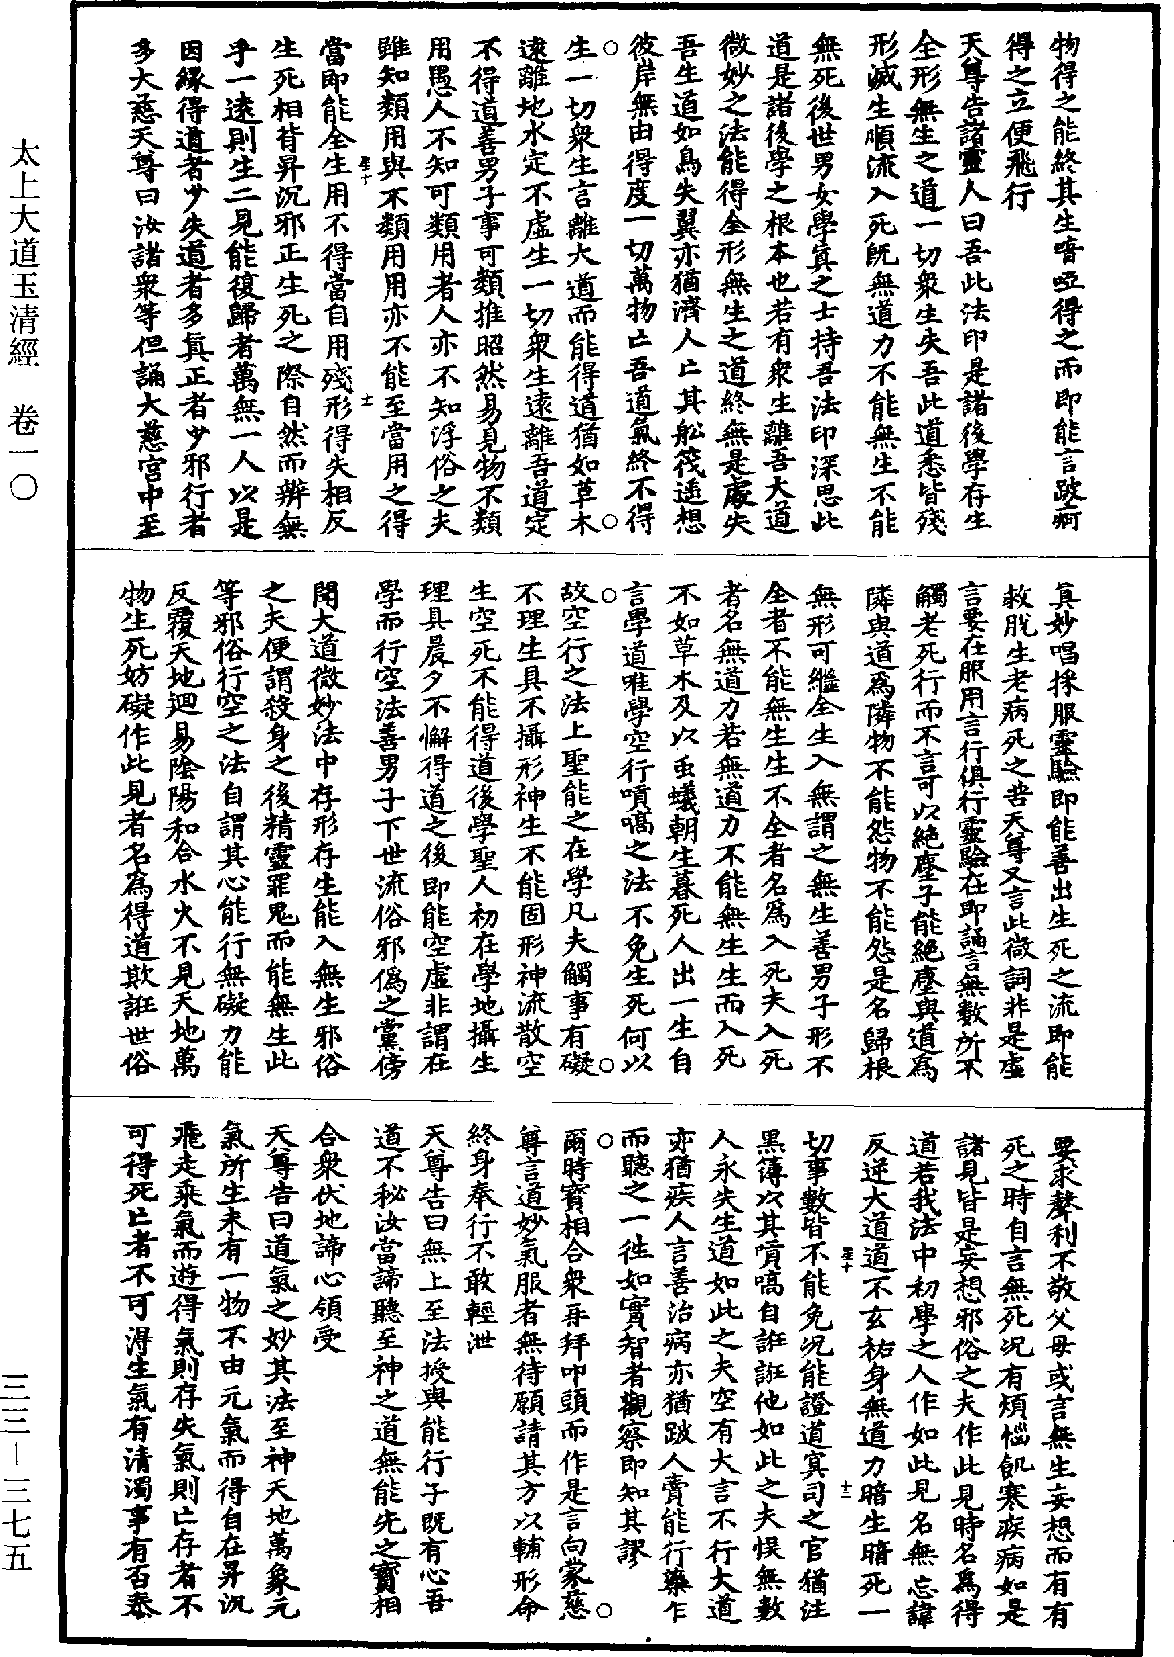 物得之能終其生喑啞得之而即能言跛痾
得之立便飛行
天尊告諸靈人曰吾此法印是諸後學存生
全形無生之道一切衆生失吾此道悉皆殘
形滅生順流入死既無道力不能無生不能
無死後世男女學真之士持吾法印深思此
道是諸後學之根本也若有衆生離吾大道
微妙之法能得全形無生之道終無是處失
吾生道如鳥失翼亦猶濟人亡其舩筏遥想
彼岸無由得度一切萬物亡吾道氣終不得
生一切衆生言離大道而能得道猶如草木
遠離地水定不虛生一切衆生遠離吾道定
不得道善男子事可類推昭然易見物不類
用愚人不知可類用者人亦不知浮俗之夫
雖知類用與不類用用亦不能至當用之得
當即能全生用不得當自用殘形得失相反
生死相背昇沉邪正生死之際自然而辯無
乎一遠則生二見能復歸者萬無一人以是
因緣得道者少失道者多真正者少邪行者
多大慈天尊曰汝諸衆等但誦大慈宫中至
真妙唱採服靈驗即能善出生死之流即能
救脱生老病死之苦天尊又言此微詞非是虛
言要在服用言行俱行靈驗在即誦言無數所不
觸老死行而不言可以絶塵子能絶塵與道爲
隣與道爲隣物不能怨物不能怨是名歸根
無形可繼全生入無謂之無生善男子形不
全者不能無生生不全者名爲入死夫入死
者名無道力若無道力不能無生生而入死
不如草木及以虫蟻朝生暮死人出一生自
言學道唯學空行嘖嗃之法不免生死何以
故空行之法上聖能之在學凡夫觸事有礙
不理生具不攝形神生不能固形神流散空
生空死不能得道後學聖人初在學地攝生
理具晨夕不懈得道之後即能空虛非謂在
學而行空法善男子下世流俗邪僞之黨傍
聞大道微妙法中存形存生能入無生邪俗
之夫便謂殺身之後精靈罪鬼而能無生此
等邪俗行空之法自謂其心能行無礙力能
反覆天地迴易陰陽和合水火不見天地萬
物生死妨礙作此見者名爲得道欺誑世俗
要求聲利不敬父母或言無生妄想而有有
死之時自言無死況有煩惱飢寒疾病如是
諸見皆是妄想邪俗之夫作此見時名爲得
道若我法中初學之人作如此見名無忌諱
反逆大道道不玄祐身無道力暗生暗死一
切事數皆不能免況能證道冥司之官猶注
黑簿以其嘖嗃自誑誑他如此之夫悮無數
人永失生道如此之夫空有大言不行大道
亦猶疾人言善治病亦猶跛人賣能行藥乍
而聽之一往如實智者觀察即知其謬
爾時寶相合衆再拜叩頭而作是言向蒙慈
尊言道妙氣服者無待願請其方以輔形命
終身奉行不敢輕泄
天尊告曰無上至法授與能行子既有心吾
道不秘汝當諦聽至神之道無能先之寶相
合衆伏地諦心領受
天尊告曰道氣之妙其法至神天地萬象元
氣所生未有一物不由元氣而得自在昇沉
飛走乘氣而遊得氣則存失氣則亡存者不
可得死亡者不可得生氣有清濁事有否泰
太上大道玉清經　卷一〇
三三－三七五